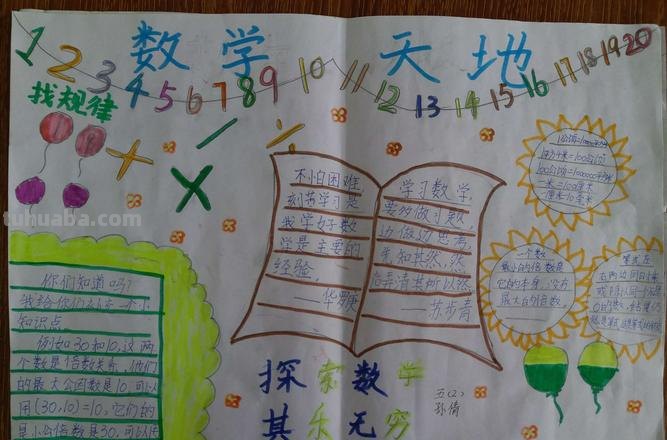 数学天地
1 2 3 4 5 6 7 8 9 10 11 12 13 14 15 16 17 18 19 20
找规律
tuhuaba.com
不怕困难,
刻苦学习是
我学好数
学是主要的
经验。
——华罗庚
学习数学,
要多做习题,
边做边思考,
先知其然,然
后弄清其所以然
——苏步青
100公顷=1000000平方米
一米=100厘米
一个数
最小的倍数是
它的本身,没有
最大的倍数。
等式左
右两边同时乘
你们知道吗?
我给你们
知识点
例如30和10,这两
个数是倍数关系,他们
的最大公因数是10,可以
用(30,10)=10,它们的
最小公倍数是30,可以
探索数学
其乐无穷
五(2)
孙倩